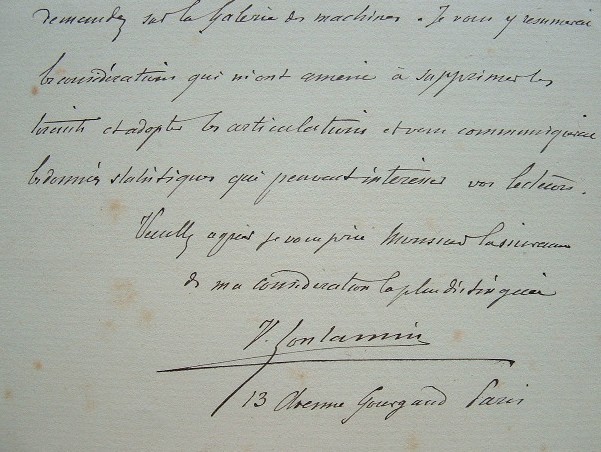 demandez sur la Galerie des machines. Je vous y resumerai
les considérations qui m'ont amené à supprimer les
tirants et adopter les articulations et vous communiquerai
les données statistiques qui peuvent intéresser vos lecteurs.
Veuillez agréer je vous prie Monsieur l'assurance
de ma considération la plus distinguée
V. Contamin
13 Avenue Gourgaud Paris